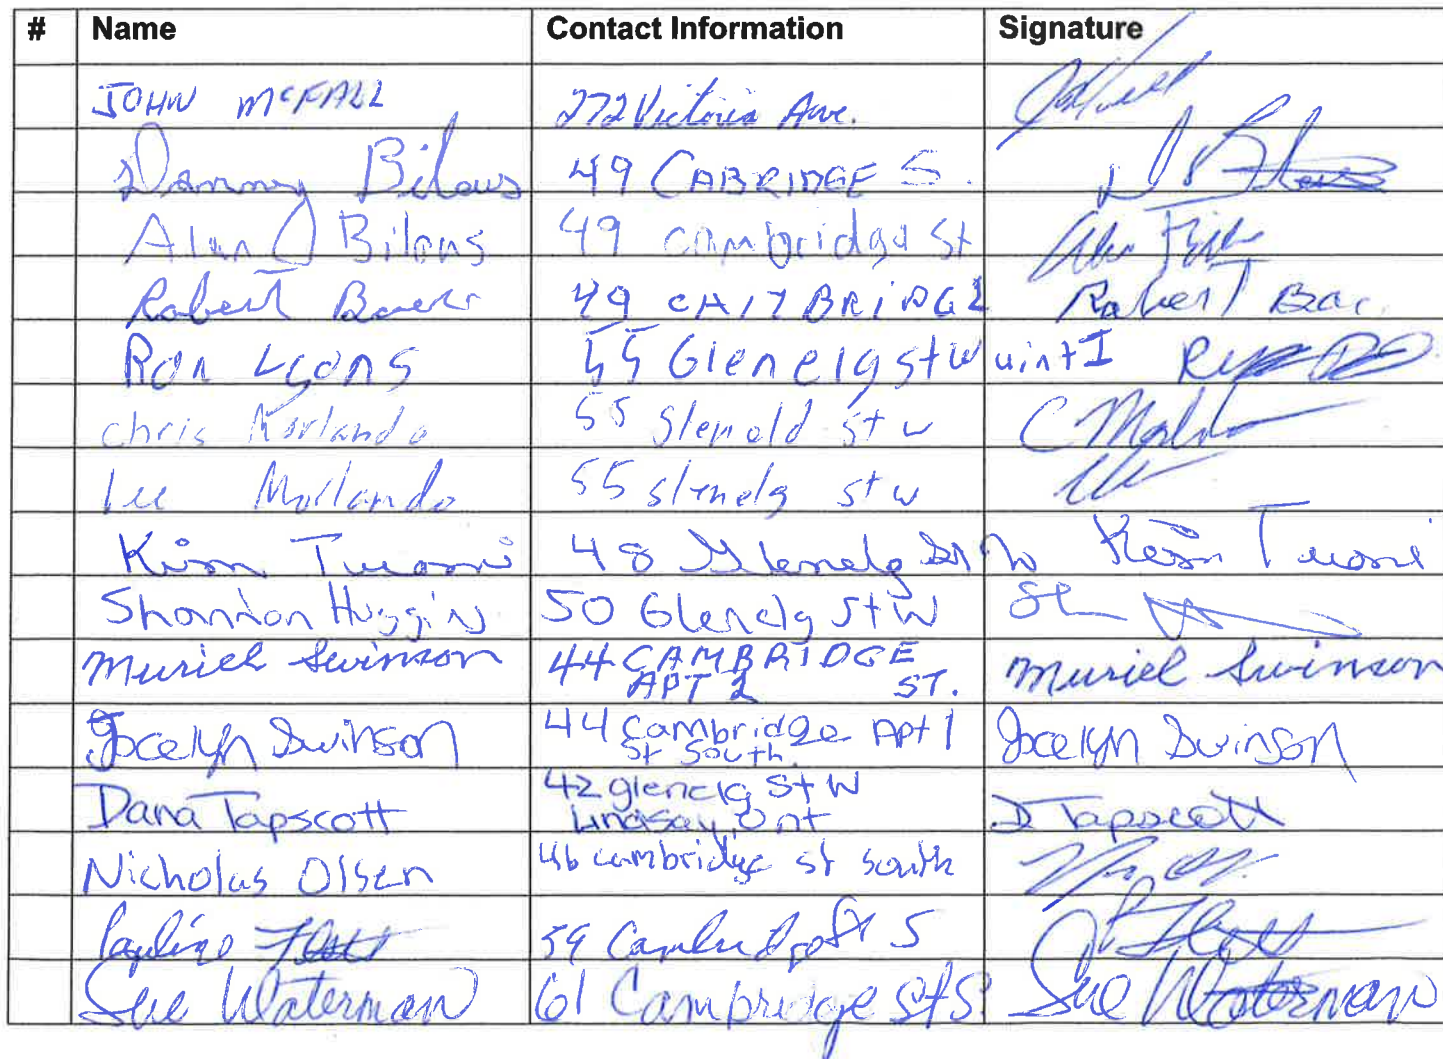 # Name Contact Information Signature
JOHN McFALL 272 Victoria Ave.
Danny Bilous 49 CABRIDGE S. D Bilous
Alan J Bilous 49 cambridge St
Robert 49 Robert
Ron Lyons 55 Glenelg st W uint I
chris Morlando 55 Glenold st w C Morlando
Lee Morlando 55 st w
Kim Tuomi 48 Glenelg St W Kim Tuomi
Shannon Huggins 50 Glenelg St W
Muriel Swinson 44 CAMBRIDGE Muriel Swinson
APT 2 ST.
Jocelyn Swinson 44 Cambridge Apt 1 Jocelyn Swinson
St South.
Dana Tapscott 42 glenelg St W D Tapscott
Lindsay, Ont
Nicholas Olsen 46 cambridge st south
Pauline 59 Cambridge St S
Sue Waterman 61 Cambridge St S. Sue Waterman